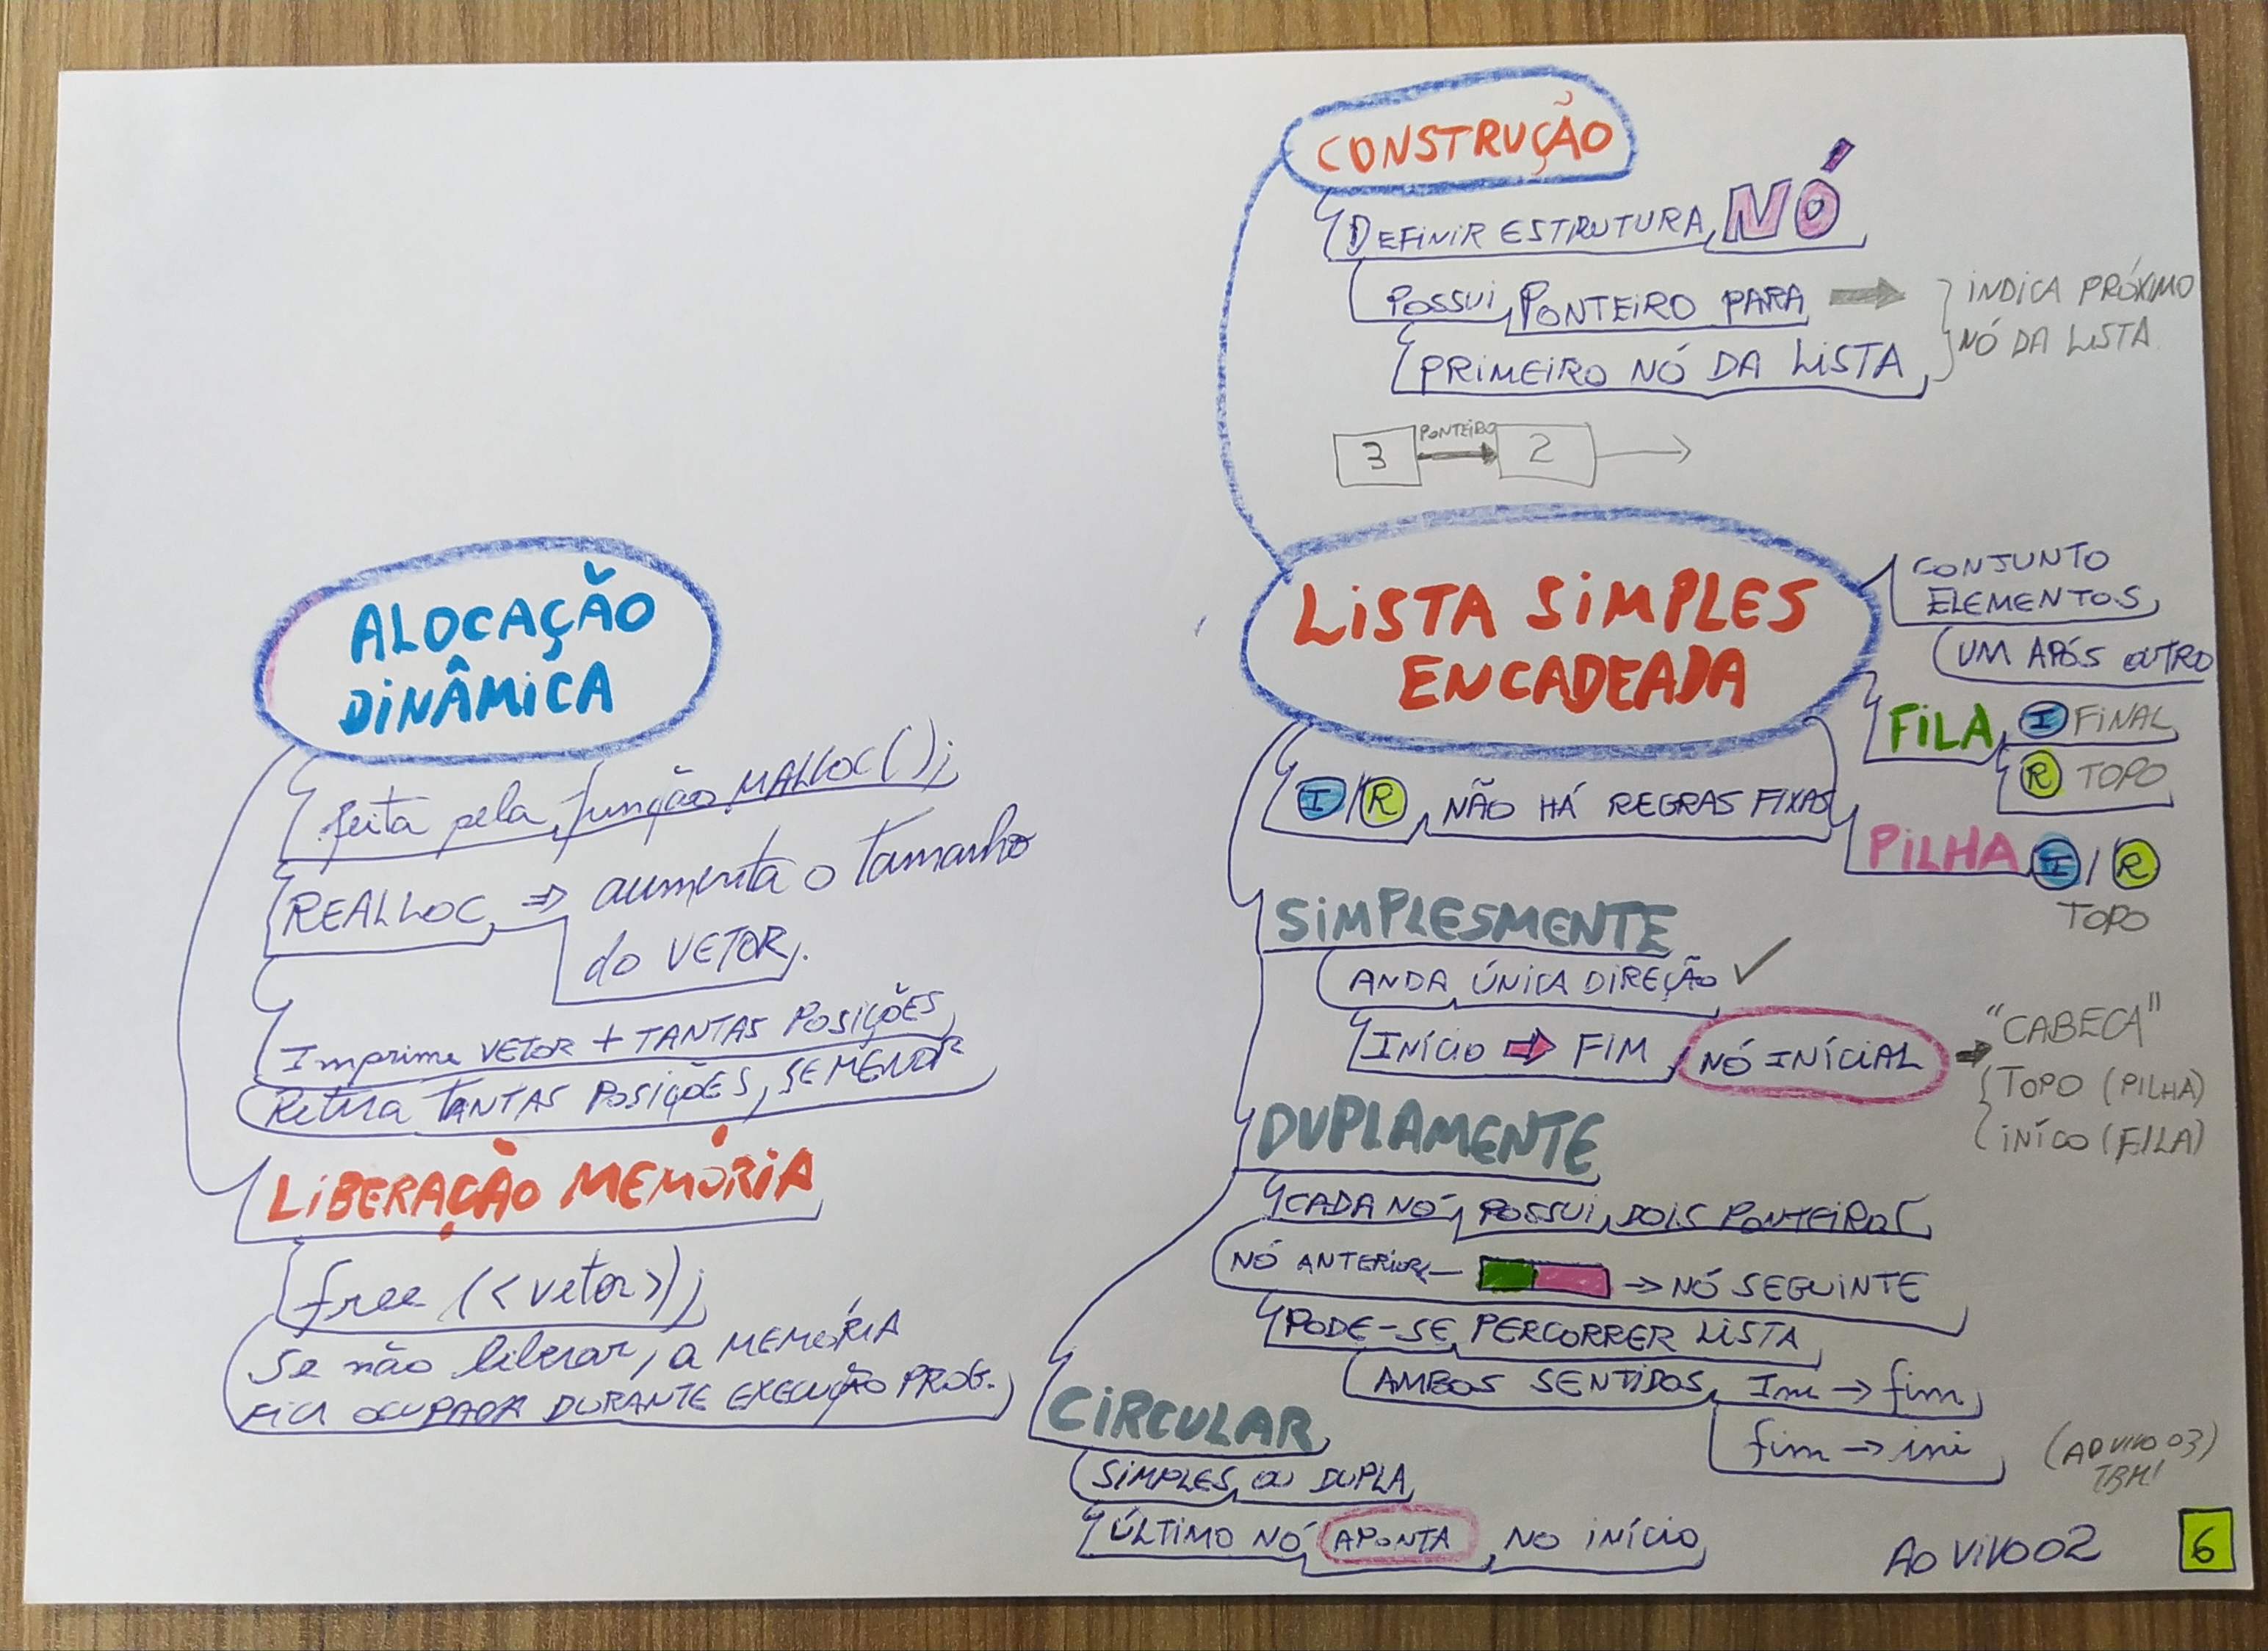 ALOCAÇÃO
DINÂMICA
feita pela função MALLOC();
REALLOC => aumenta o tamanho
do VETOR.
Imprime VETOR + TANTAS POSIÇÕES
Retira TANTAS POSIÇÕES, SE MENOR
LIBERAÇÃO MEMÓRIA
free (<vetor>);
Se não liberar, a MEMÓRIA
FICA OCUPADA DURANTE EXECUÇÃO PROG.
CONSTRUÇÃO
DEFINIR ESTRUTURA NÓ
POSSUI PONTEIRO PARA →
PRIMEIRO NÓ DA LISTA
INDICA PRÓXIMO
NÓ DA LISTA
3 PONTEIRO 2
LISTA SIMPLES
ENCADEADA
CONJUNTO
ELEMENTOS
UM APÓS OUTRO
FILA I FINAL
R TOPO
PILHA I / R
TOPO
I / R NÃO HÁ REGRAS FIXAS
SIMPLESMENTE
ANDA ÚNICA DIREÇÃO ✓
INÍCIO ⇒ FIM NÓ INÍCIAL → "CABECA"
TOPO (PILHA)
INÍCO (FILA)
DUPLAMENTE
CADA NÓ POSSUI DOIS PONTEIROS
NÓ ANTERIOR ← → NÓ SEGUINTE
PODE-SE PERCORRER LISTA
AMBOS SENTIDOS Ini → fim
fim → ini
(AO VIVO 03)
TBM!
CIRCULAR
SIMPLES OU DUPLA
ÚLTIMO NÓ APONTA NO INÍCIO
AO VIVO 02
6